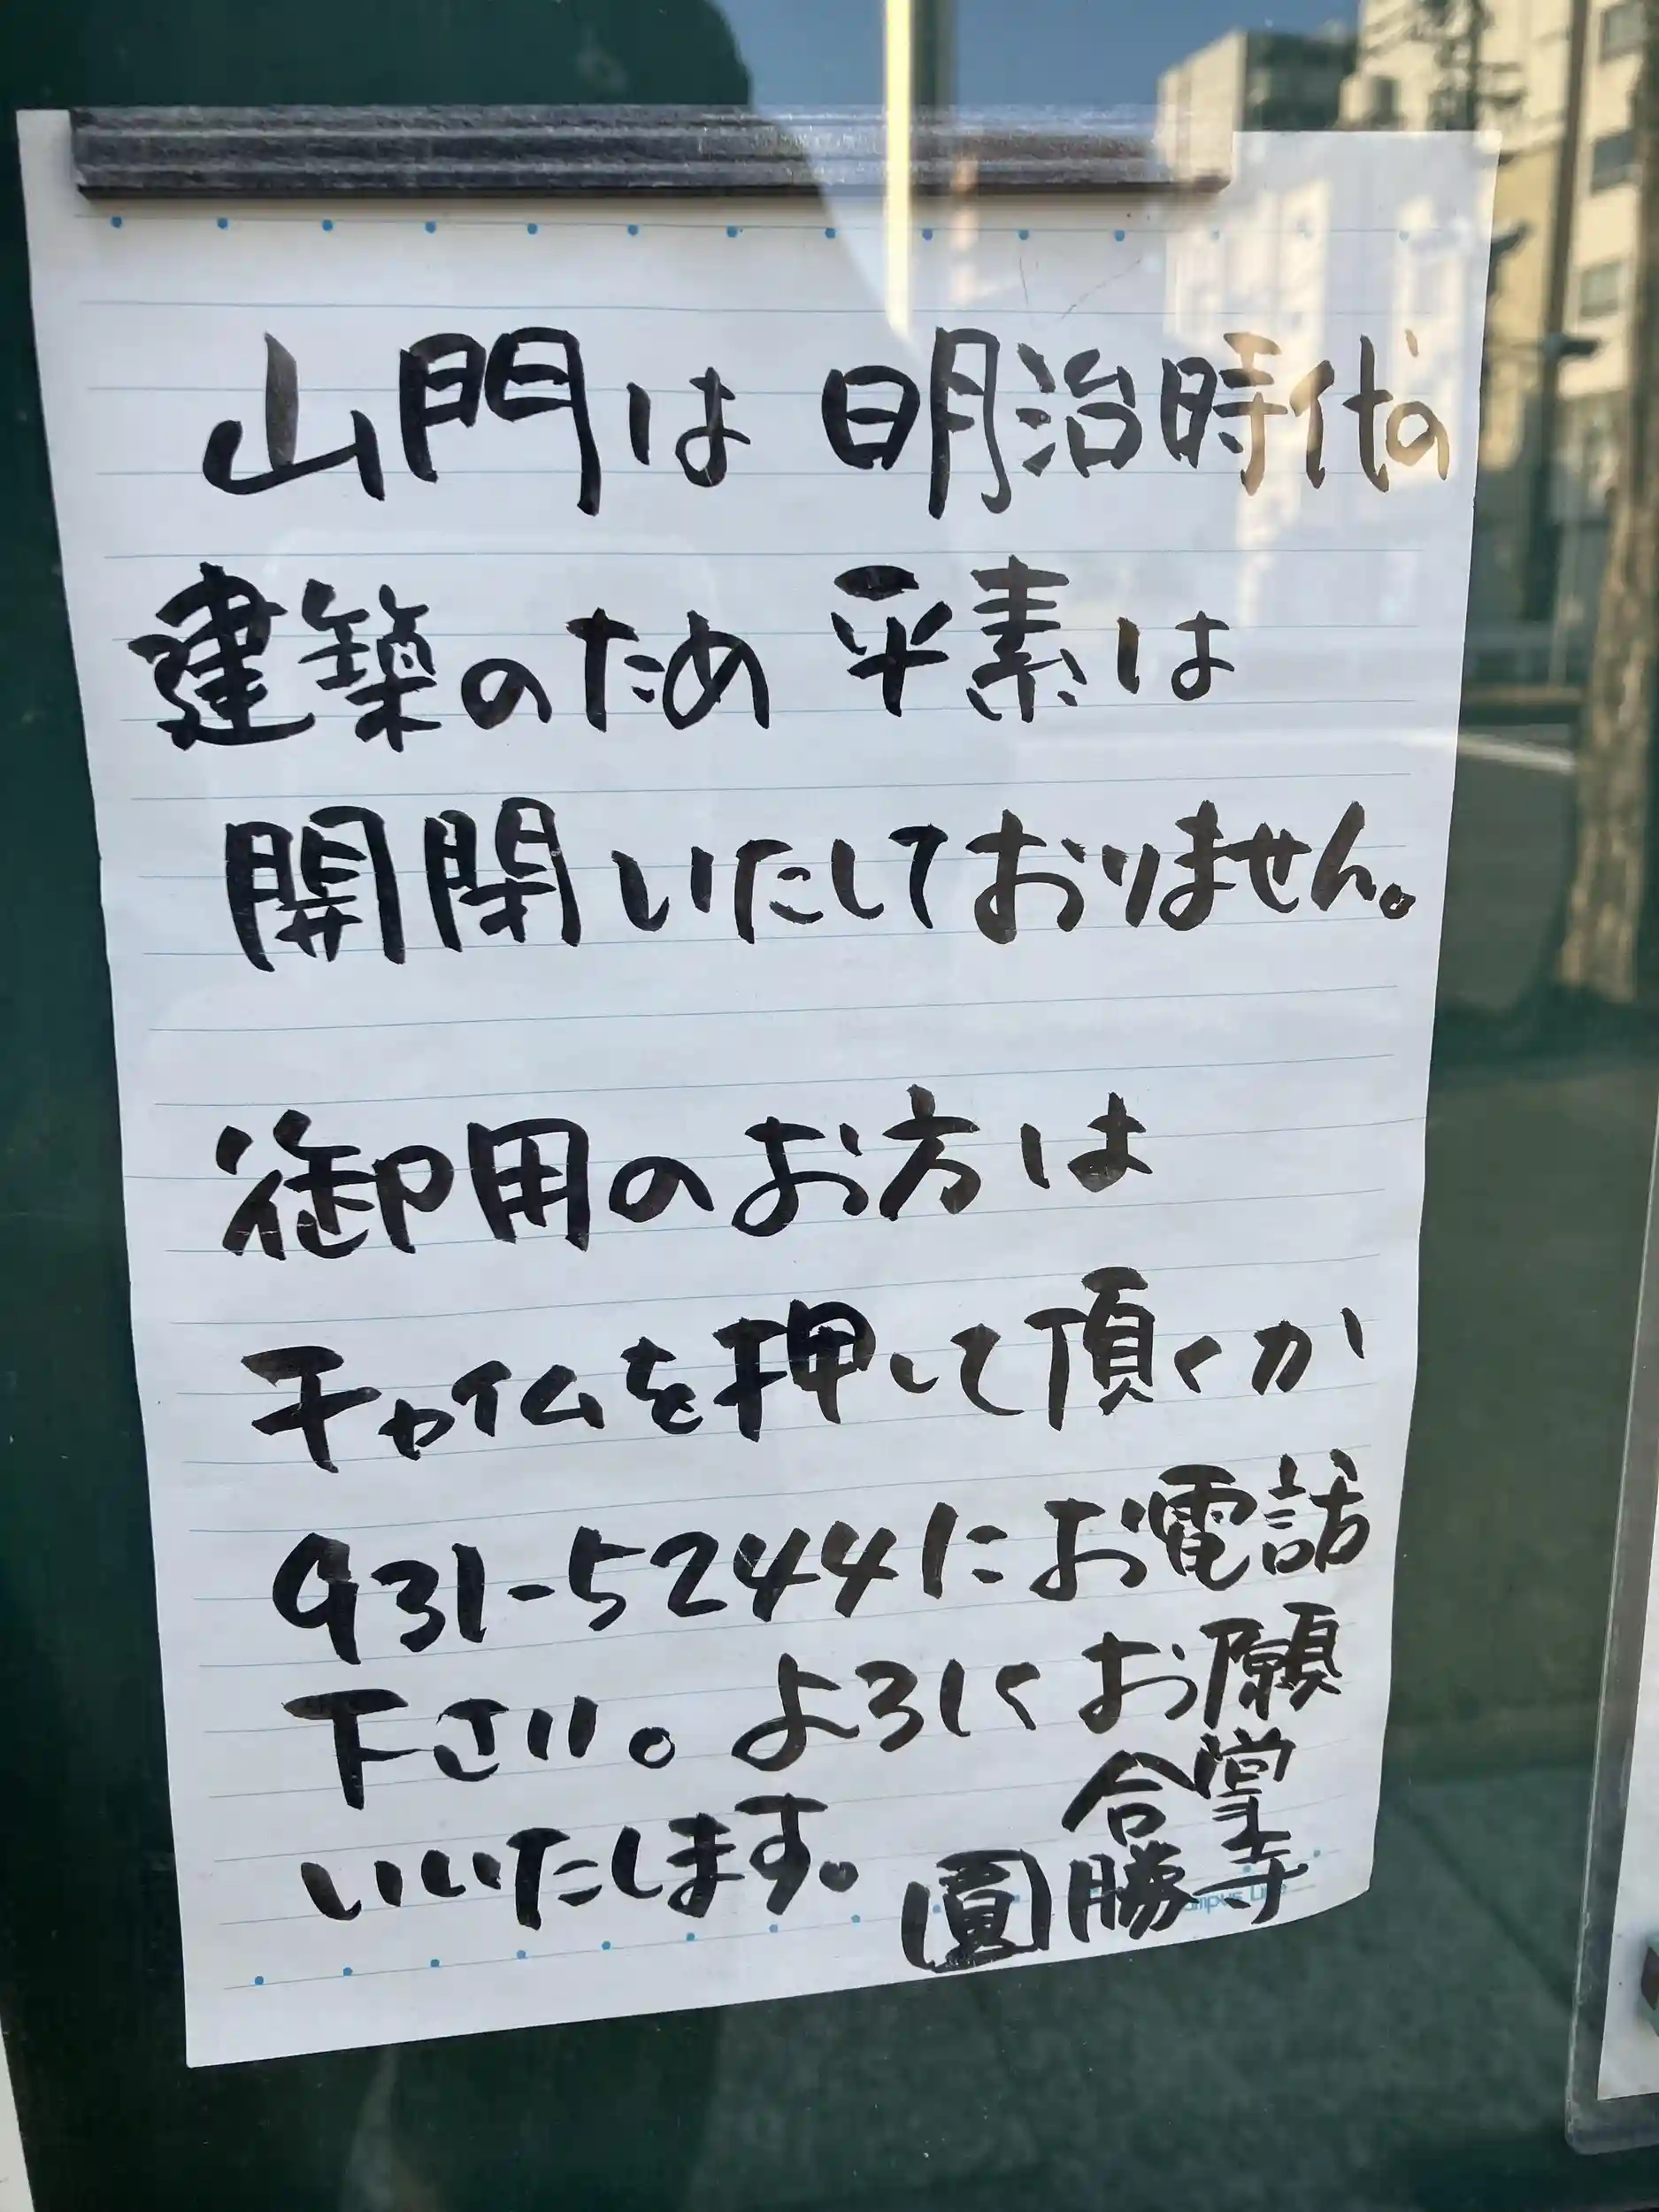 山門は 明治時代の
建築のため 平素は
開閉いたしておりません。
御用のお方は
チャイムを押して頂くか
931-5244にお電話
下さい。よろしくお願
いいたします。
合掌
圓勝寺